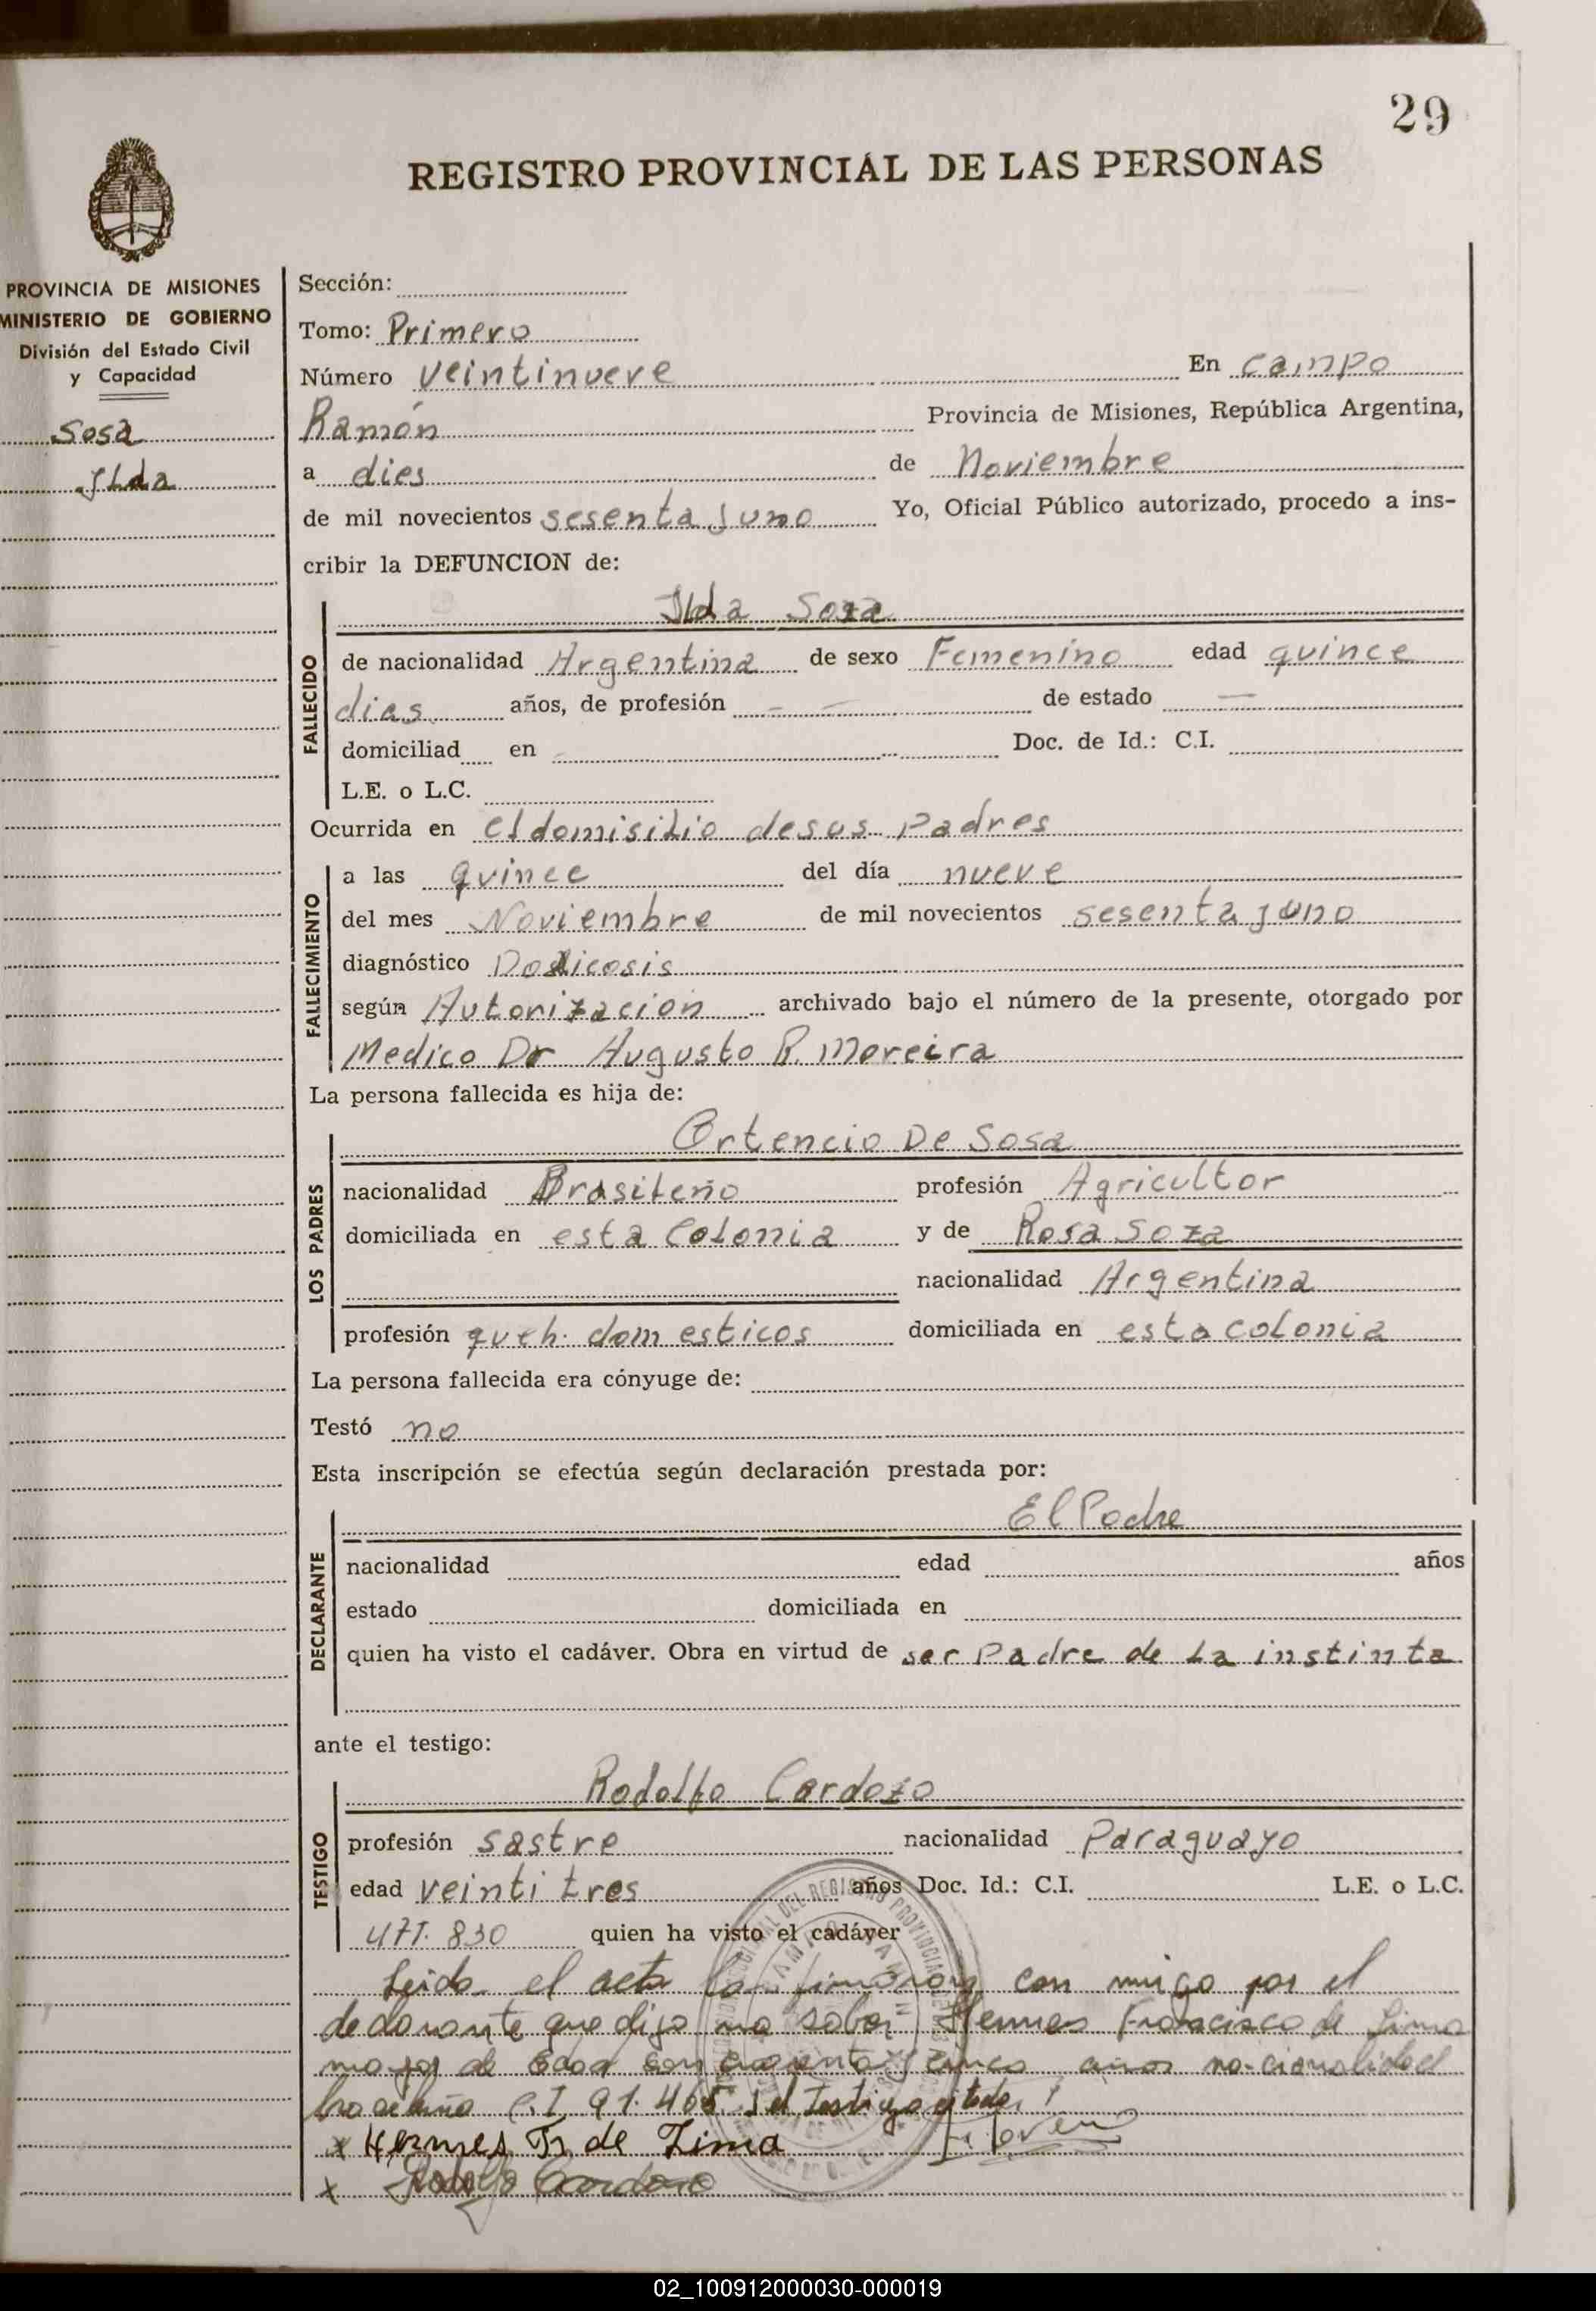 29
REGISTRO PROVINCIAL DE LAS PERSONAS
PROVINCIA DE MISIONES
MINISTERIO DE GOBIERNO
División del Estado Civil
y Capacidad
Sosa
Ilda
Sección:
Tomo: Primero
Número veintinueve En campo
Ramón Provincia de Misiones, República Argentina,
a dies de Noviembre
de mil novecientos sesenta y uno Yo, Oficial Público autorizado, procedo a ins-
cribir la DEFUNCION de:
Ilda Soza
FALLECIDO
de nacionalidad Argentina de sexo Femenino edad quince
dias años, de profesión - - de estado -
domiciliad en - Doc. de Id.: C.I.
L.E. o L.C.
Ocurrida en el domisilio de sus Padres
FALLECIMIENTO
a las quince del día nueve
del mes Noviembre de mil novecientos sesenta y uno
diagnóstico
según Autorización archivado bajo el número de la presente, otorgado por
Medico Dr Augusto R. Moreira
La persona fallecida es hija de:
LOS PADRES
Ortencio De Sosa
nacionalidad Brasileño profesión Agricultor
domiciliada en esta Colonia y de Rosa Soza
nacionalidad Argentina
profesión queh. domesticos domiciliada en esta colonia
La persona fallecida era cónyuge de:
Testó no
Esta inscripción se efectúa según declaración prestada por:
DECLARANTE
El Padre
nacionalidad edad años
estado domiciliada en
quien ha visto el cadáver. Obra en virtud de ser Padre de La instinta
ante el testigo:
TESTIGO
Rodolfo Cardozo
profesión sastre nacionalidad Paraguayo
edad veinti tres años Doc. Id.: C.I. L.E. o L.C.
471.830 quien ha visto el cadáver
Leida el acta la firmaron con migo por el
declarante que dijo no saber Hermes Francisco de Lima
mayor de edad con cuarenta y cinco años nacionalidad
brasileño C.I 91.465 y el testigo citado
x Hermes Fr de Lima
x Rodolfo Cardozo
02_100912000030-000019